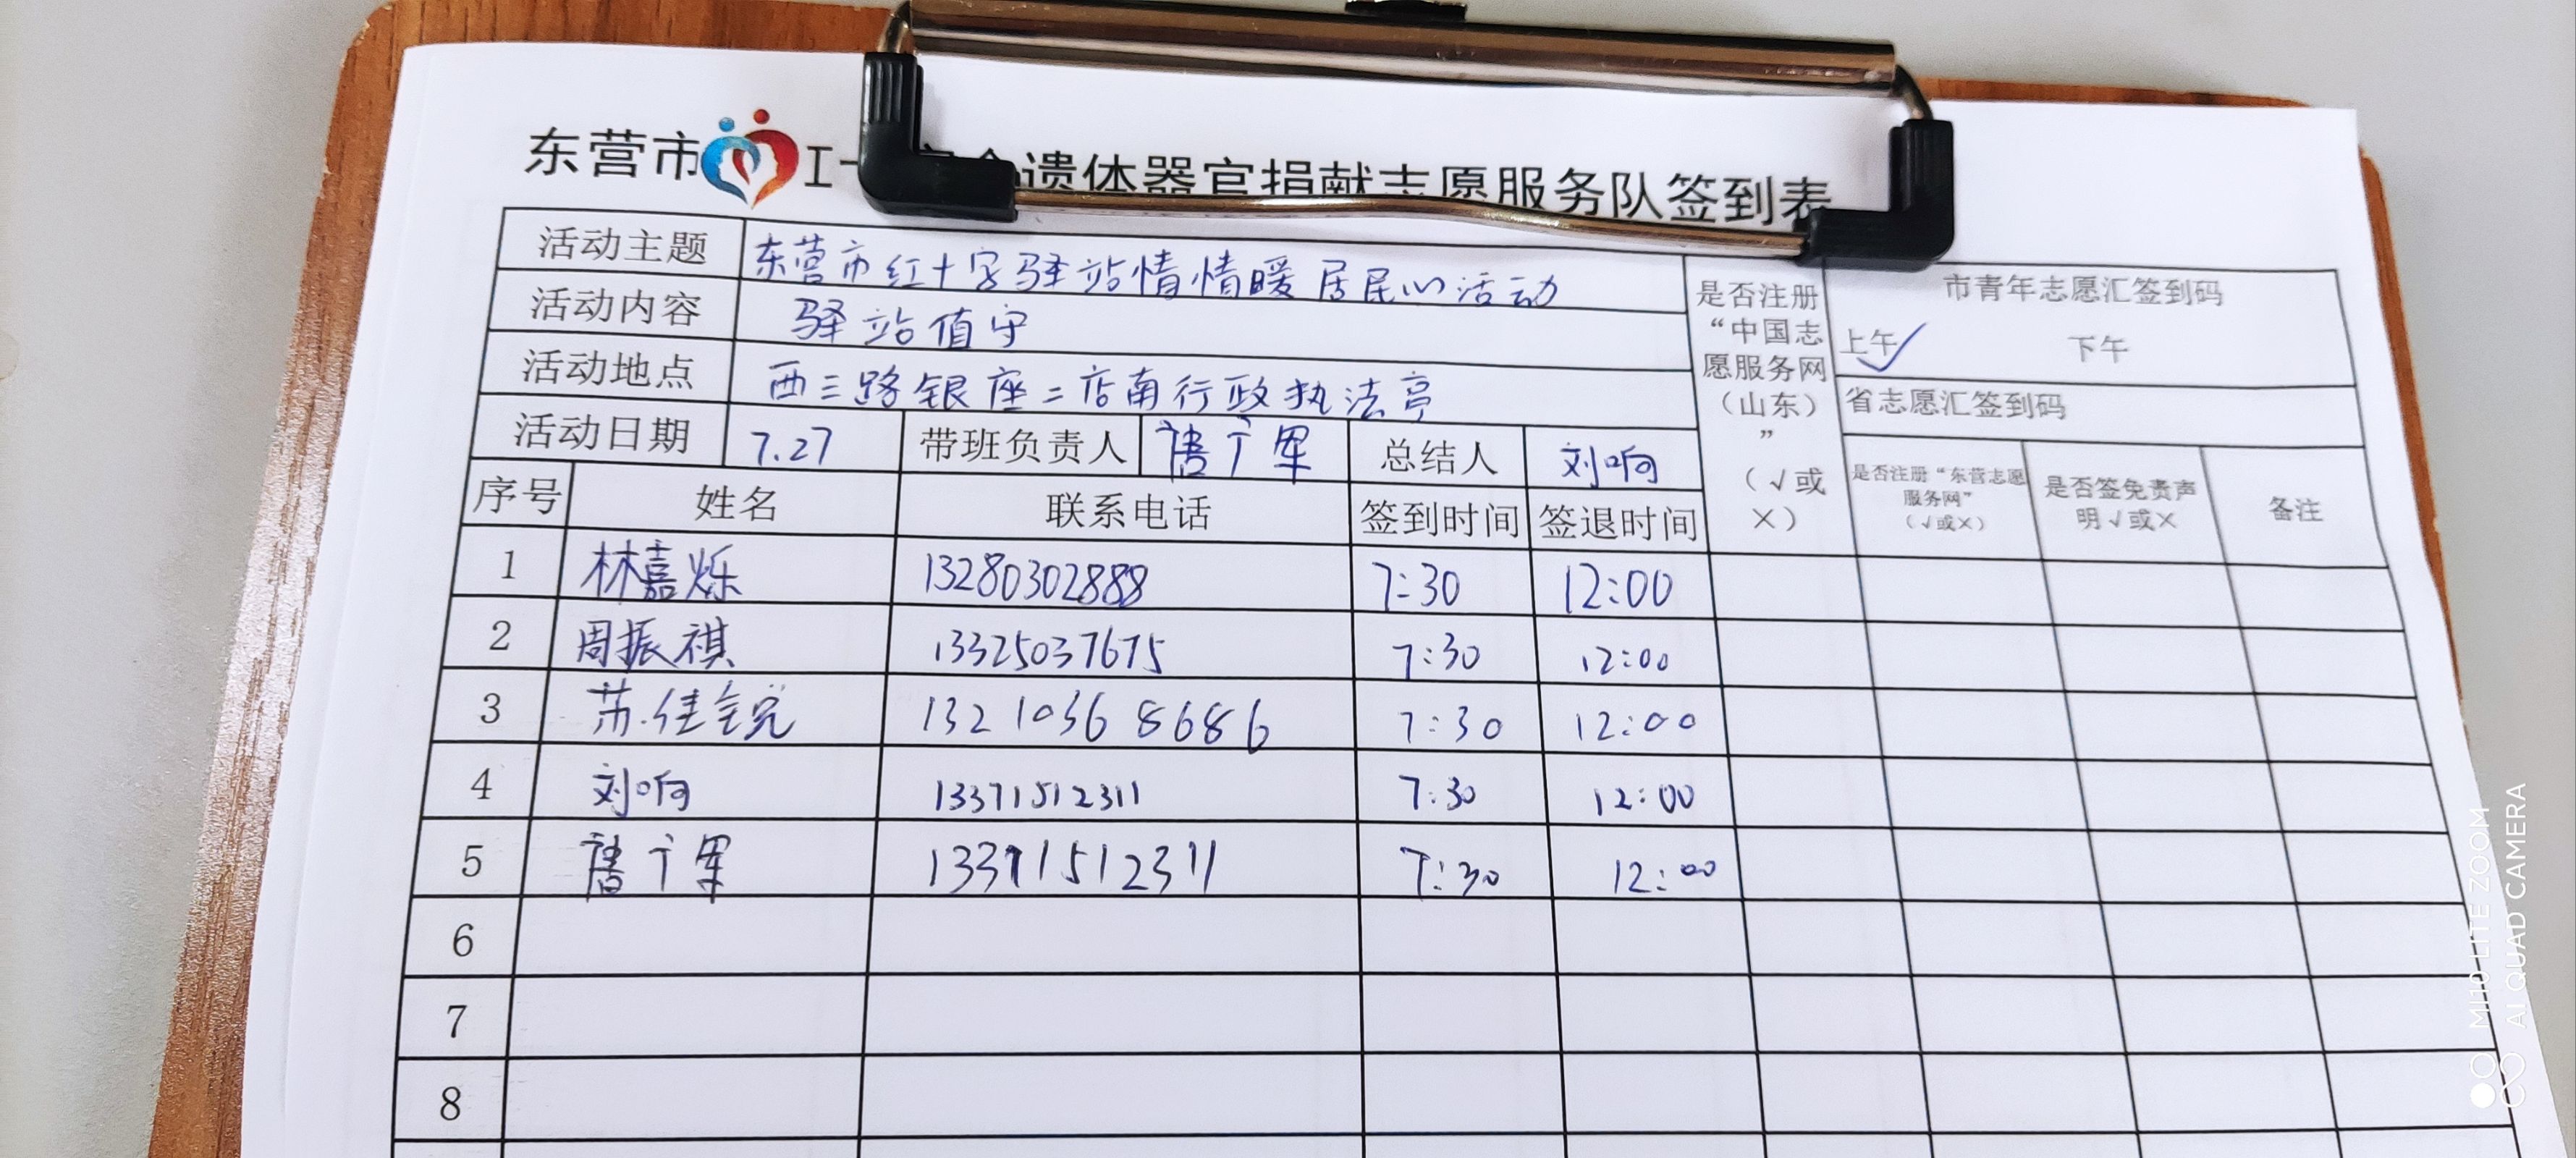 东营市 遗体器官捐献志愿服务队签到表
活动主题 东营市红十字驿站情情暖居民心活动
活动内容 驿站值守
活动地点 西三路银座二店南行政执法亭
活动日期 7.27 带班负责人 唐广军 总结人 刘响
是否注册
“中国志
愿服务网
（山东）
”
（√或
×）
市青年志愿汇签到码
上午✓ 下午
省志愿汇签到码
是否注册“东营志愿
服务网”
（√或×）
是否签免责声
明√或×
备注
序号 姓名 联系电话 签到时间 签退时间
1 林嘉烁 13280302888 7:30 12:00
2 周振祺 13325037675 7:30 12:00
3 苏佳锐 13210368686 7:30 12:00
4 刘响 13371512311 7:30 12:00
5 唐广军 13371512311 7:30 12:00
6
7
8
MI 10 LITE ZOOM
AI QUAD CAMERA